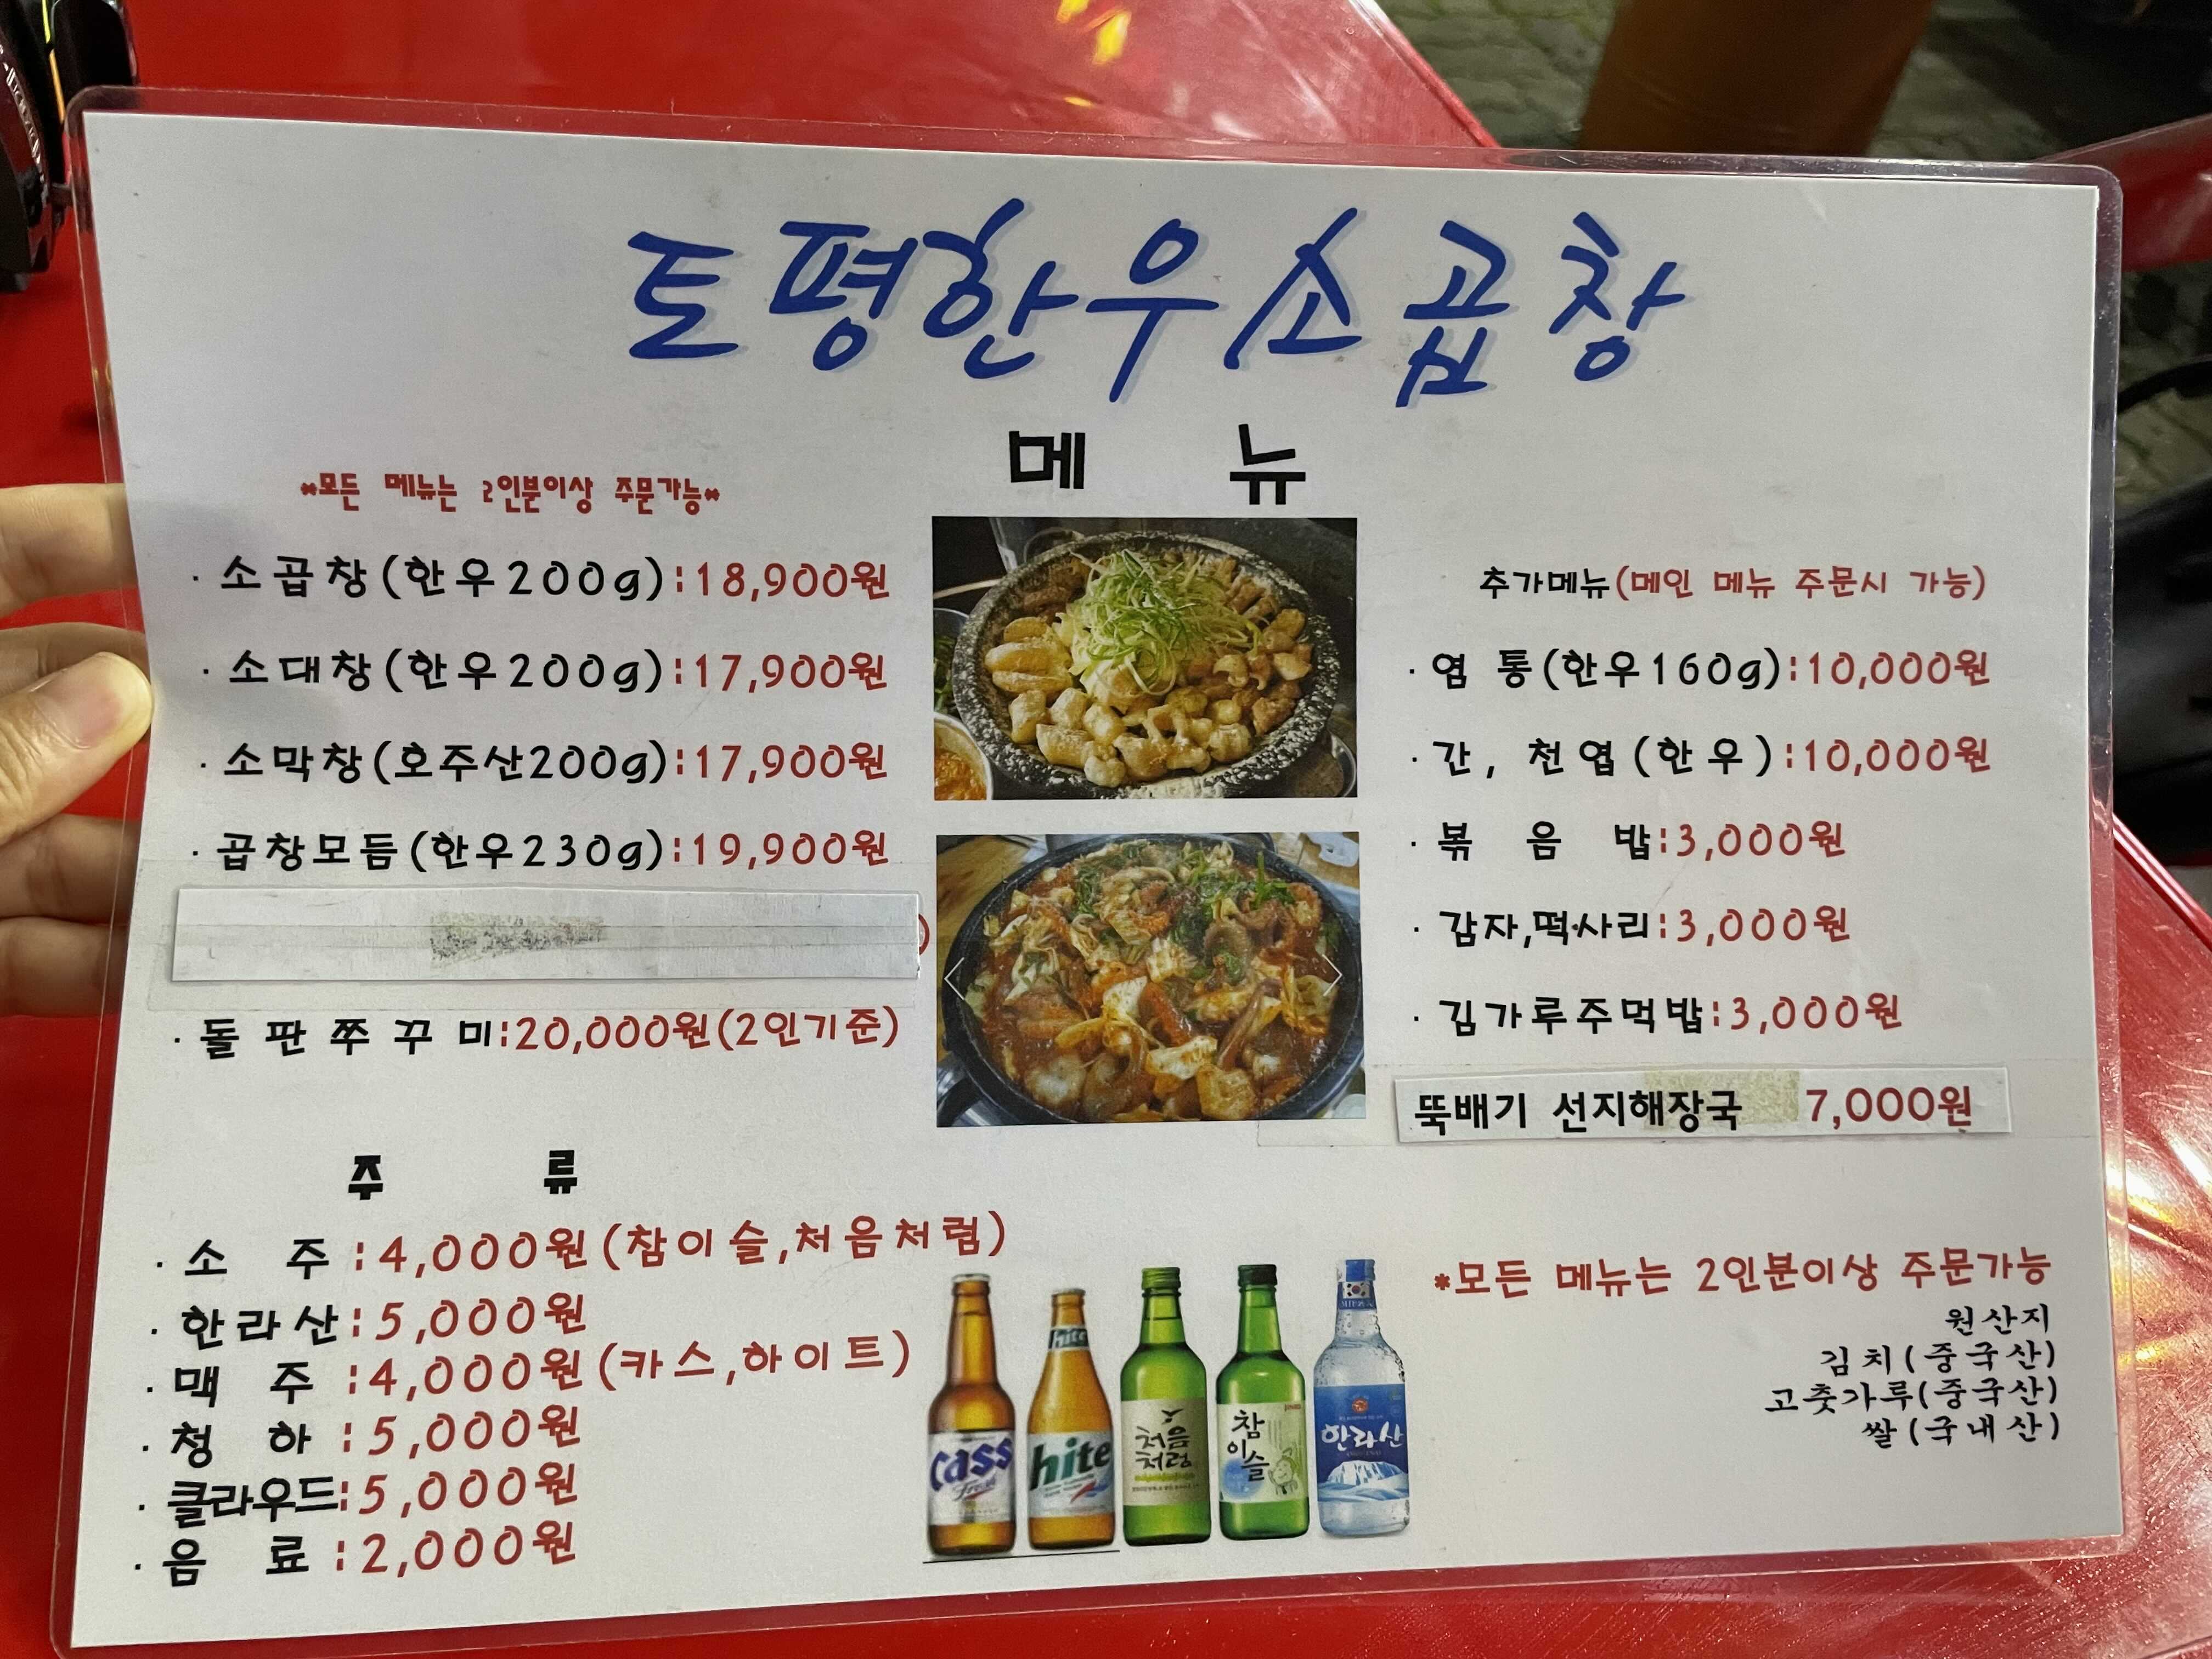 토평한우소곱창
메 뉴
*모든 메뉴는 2인분이상 주문가능*
· 소곱창(한우200g):18,900원
· 소대창(한우200g):17,900원
· 소막창(호주산200g):17,900원
· 곱창모듬(한우230g):19,900원
· 돌판쭈꾸미:20,000원(2인기준)
추가메뉴(메인 메뉴 주문시 가능)
· 염통(한우160g):10,000원
· 간, 천엽(한우):10,000원
· 볶음밥:3,000원
· 감자,떡사리:3,000원
· 김가루주먹밥:3,000원
뚝배기 선지해장국 7,000원
주 류
· 소 주 :4,000원(참이슬,처음처럼)
· 한라산:5,000원
· 맥 주 :4,000원(카스,하이트)
· 청 하 :5,000원
· 클라우드:5,000원
· 음 료 :2,000원
Cass
Fresh
hite
hite
처음
처럼
참
이
슬
한라산
*모든 메뉴는 2인분이상 주문가능
원산지
김치(중국산)
고춧가루(중국산)
쌀(국내산)